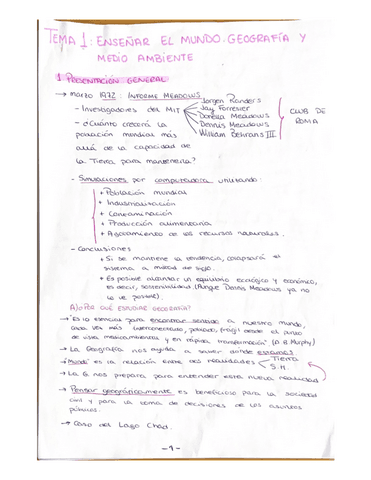 TEMA 1: ENSEÑAR EL MUNDO: GEOGRAFÍA Y
MEDIO AMBIENTE
1. PRESENTACIÓN GENERAL
→ marzo 1972: INFORME MEADOWS
- Investigadores del MIT
Jorgen Randers
Jay Forrester
Donella Meadows
Dennis Meadows
William Behrans III
CLUB DE
ROMA
- ¿Cuánto crecerá la
población mundial más
allá de la capacidad de
la Tierra para mantenerla?
- Simulaciones por computadora utilizando:
+ Población mundial
+ Industrialización
+ Contaminación
+ Producción alimentaria
+ Agotamiento de los recursos naturales.
- Conclusiones
+ Si se mantiene la tendencia, colapsará el
sistema a mitad de siglo.
+ Es posible alcanzar un equilibrio ecológico y económico,
es decir, sostenibilidad. (Aunque Dennis Meadows ya no
lo ve posible).
A) ¿POR QUÉ ESTUDIAR GEOGRAFÍA?
→ "Es lo esencial para encontrar sentido a nuestro mundo,
cada vez más interconectado, poblado, frágil desde el punto
de vista medioambiental y en rápida transformación" (A B Murphy)
→ La Geografía nos ayuda a saber dónde estamos
→ "Mundo" es la relación entre dos realidades
Tierra
S.H.
→ La G nos prepara para entender esta nueva realidad
→ Pensar geográficamente es beneficioso para la sociedad
civil y para la toma de decisiones de los asuntos
públicos.
→ Caso del Lago Chad.
- 1 -